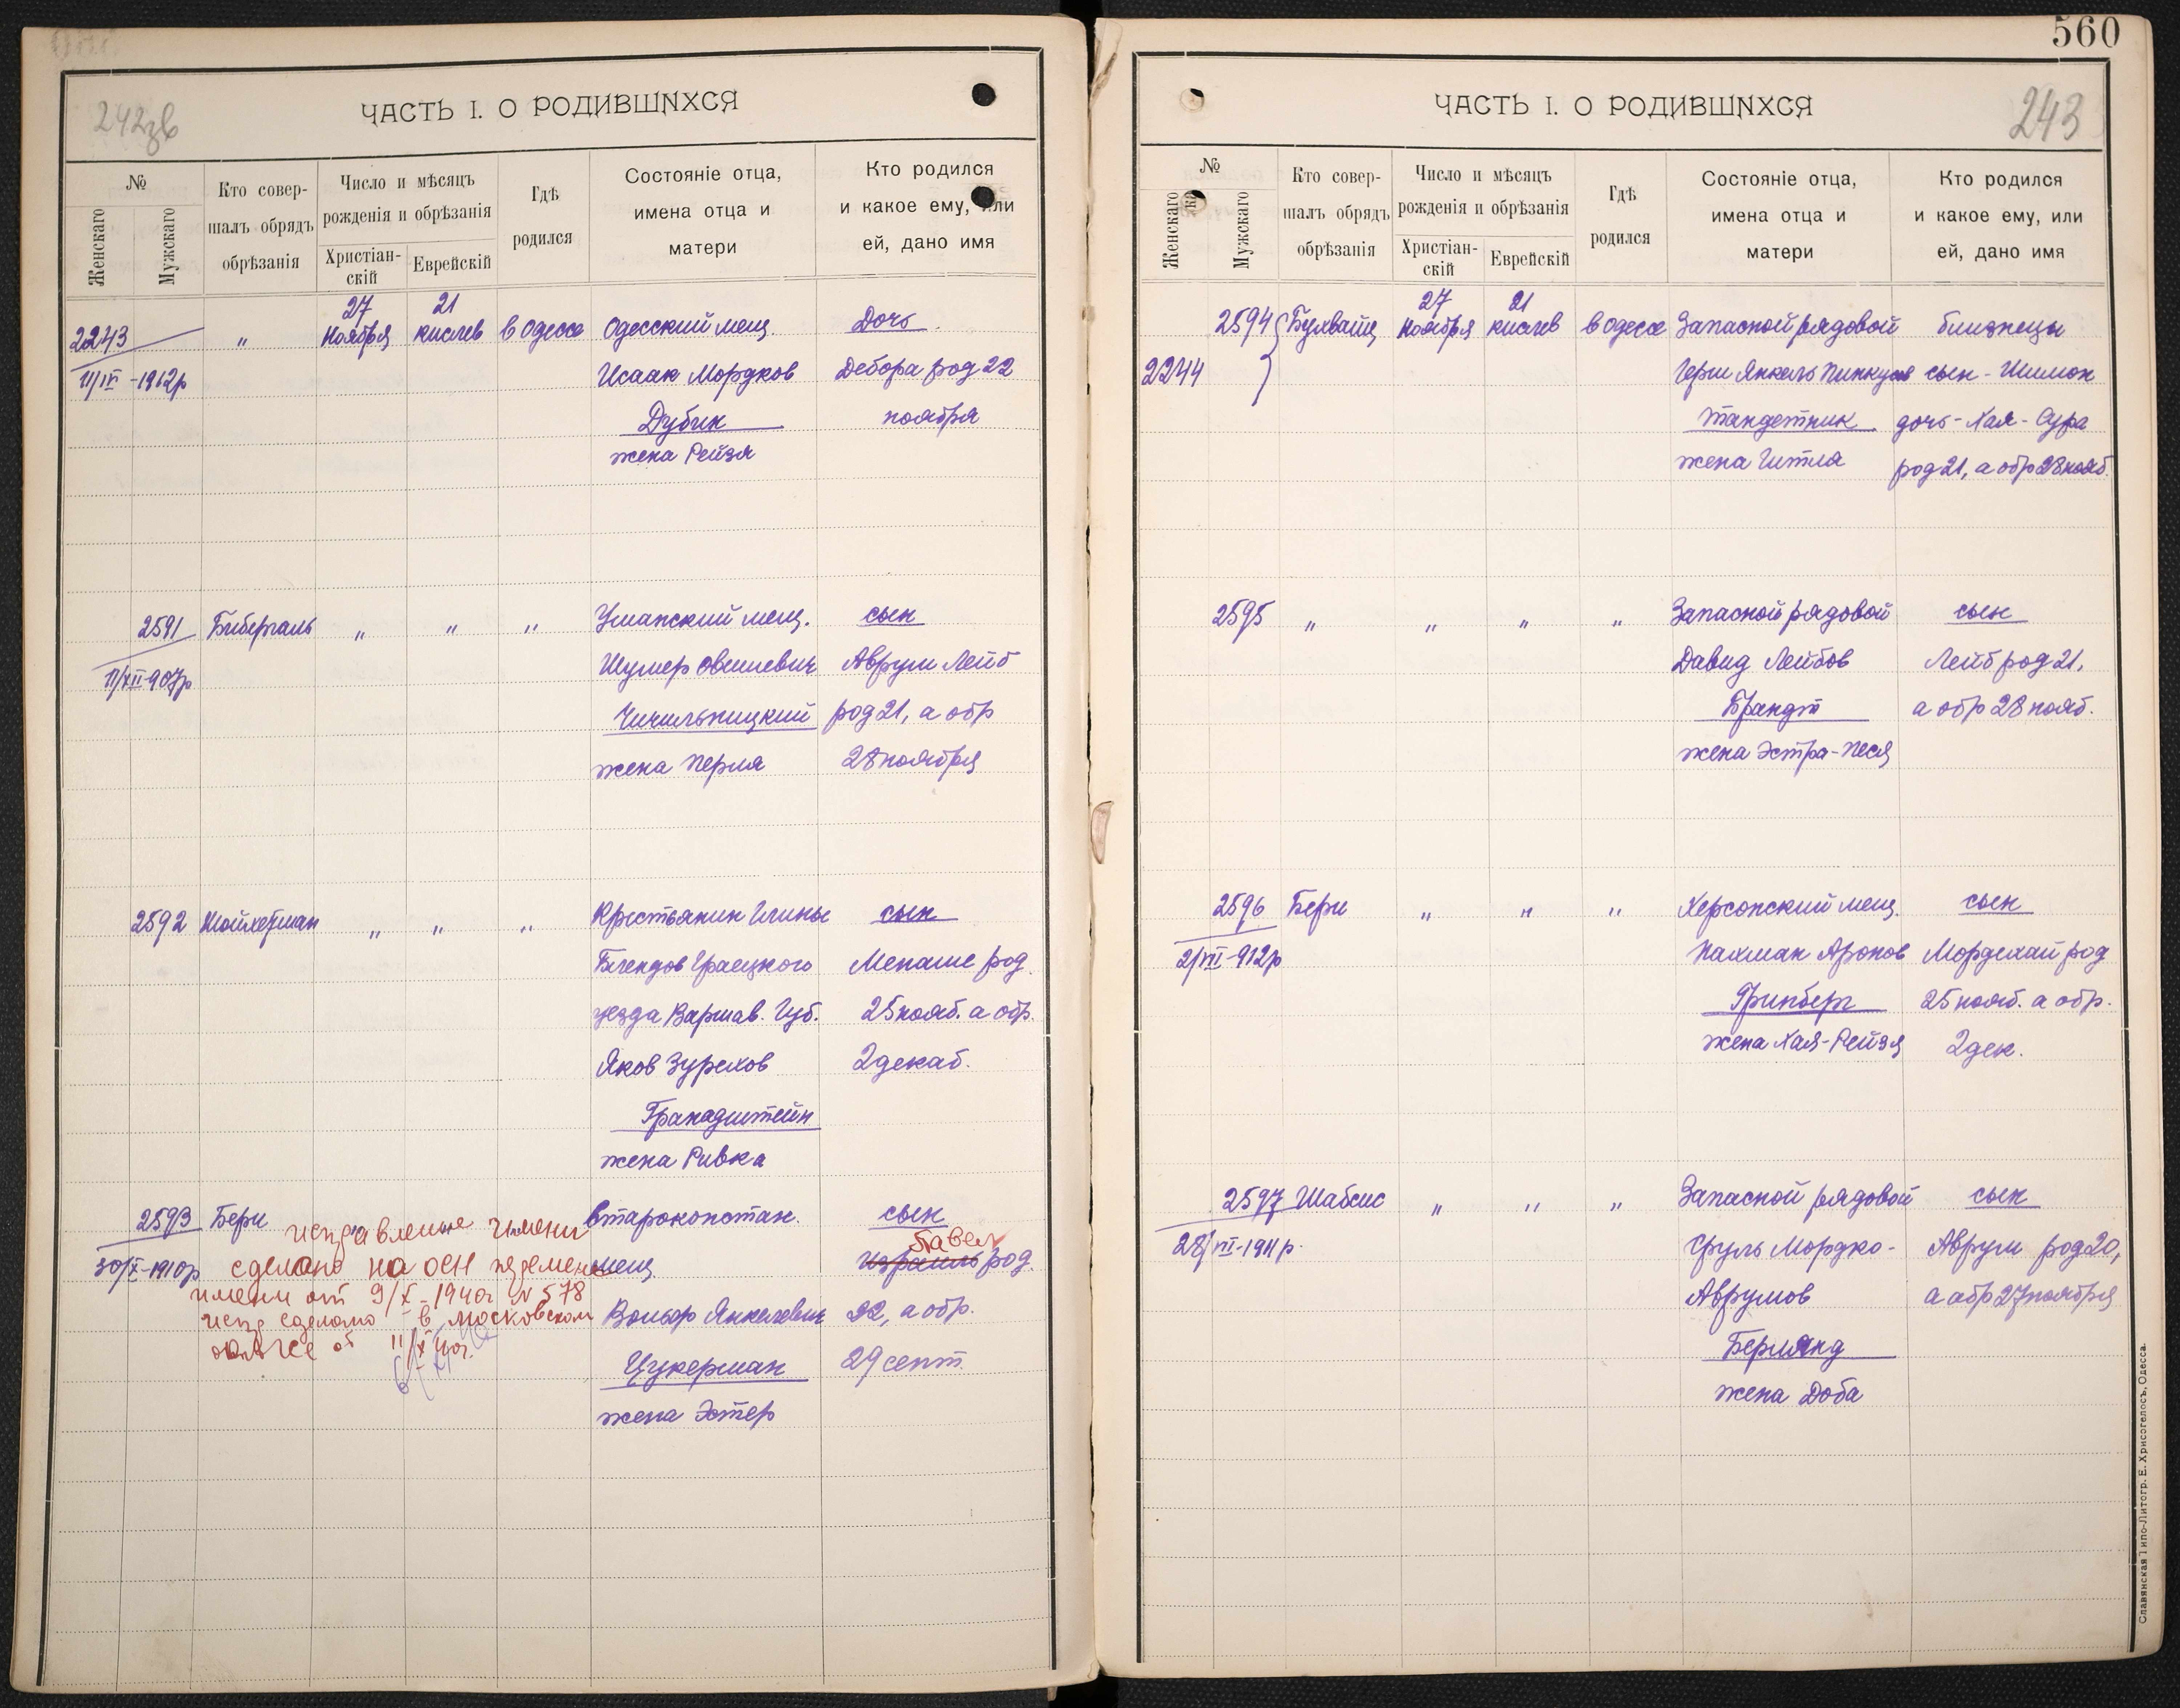 242зв
ЧАСТЬ I. О РОДИВШИХСЯ
№
Женскаго
Мужскаго
Кто совер-
шалъ обрядъ
обрѣзанія
Число и мѣсяцъ
рожденія и обрѣзанія
Христіан-
скій
Еврейскій
Гдѣ
родился
Состояніе отца,
имена отца и
матери
Кто родился
и какое ему, или
ей, дано имя
27 21
2243 " Ноября кислев в Одессе Одесский мещ. Дочь
11/IV-1912р Исаак Мордков Дебора род 22
Дубик ноября
жена Рейзя
2591 Бибергаль " " " Уманский мещ. сын
11/XII-907р Шумер Овшиевич Аврум Лейб
Чичильницкий род 21, а обр
жена Перля 28 ноября
2592 " " " Крестьянин Гмины сын
Блендов Граецкого Менаше род.
уезда Варшав. Губ. 25 нояб. а обр.
Яков Зурехов 2 декаб.
Гранадштейн
жена Ривка
2593 Бери Староконстан. сын
исправление имени
Павел
30/X-1910р сделано на осн перемены мещ Израиль род.
имени от 9/X-1940г N 578
испр сделано в московском Вольф Янкелевич 22, а обр.
11/X 40г.
Цукерман 29 сент.
жена Эстер
560
243
ЧАСТЬ I. О РОДИВШИХСЯ
№
Женскаго
Мужскаго
Кто совер-
шалъ обрядъ
обрѣзанія
Число и мѣсяцъ
рожденія и обрѣзанія
Христіан-
скій
Еврейскій
Гдѣ
родился
Состояніе отца,
имена отца и
матери
Кто родился
и какое ему, или
ей, дано имя
27 21
2594 Бухвайц Ноября кислев в Одессе Запасной рядовой близнецы
2244 Герш Янкель Пинкусов сын - Шимон
Тандетник дочь - Хая - Сура
жена Гитля род 21, а обр 28 нояб.
2595 " " " " Запасной рядовой сын
Давид Лейбов Лейб род 21,
Брандт а обр 28 нояб.
жена Эстра-Песя
2596 Бери " " " Херсонский мещ. сын
2/VII-912р Нахман Аронов Мордехай род
Гринберг 25 нояб. а обр.
жена Хая-Рейзя 2 дек.
2597 Шабсис " " " Запасной рядовой сын
28/VII-1911р. Сруль Мордко- Аврум род 20,
Аврумов а обр 27 ноября
Берлянд
жена Доба
Славянская Типо-Литогр. Е. Хрисогелосъ, Одесса.